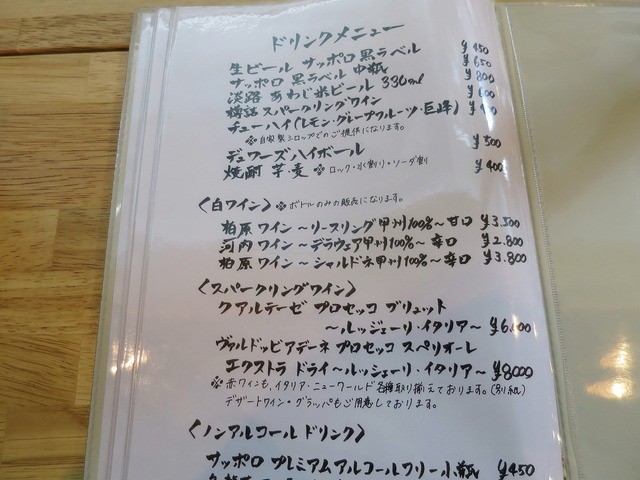 ドリンクメニュー
生ビール サッポロ 黒ラベル ¥450
サッポロ 黒ラベル 中瓶 ¥650
淡路 あわじ米ビール 330ml ¥800
樽詰 スパークリングワイン ¥600
チューハイ(レモン・グレープフルーツ・巨峰)
※自家製シロップでのご提供になります。
デュワーズハイボール ¥500
焼酎 芋・麦 ※ロック・水割り・ソーダ割 ¥400
〈白ワイン〉※ボトルのみの販売になります。
柏原ワイン〜リースリング甲州100%〜甘口 ¥3.500
河内ワイン〜デラウェア甲州100%〜辛口 ¥2.800
柏原ワイン〜シャルドネ甲州100%〜辛口 ¥3.800
〈スパークリングワイン〉
クアルテーゼ プロセッコ ブリュット
〜ルッジェーリ・イタリア〜
ヴァルドッビアデーネ プロセッコ スペリオーレ
エクストラ ドライ〜ルッジェーリ・イタリア〜 ¥8000
※赤ワインも、イタリア・ニューワールド各種取り揃えております。(別紙)
デザートワイン・グラッパもご用意しております。
〈ノンアルコールドリンク〉
サッポロ プレミアムアルコールフリー小瓶 ¥450